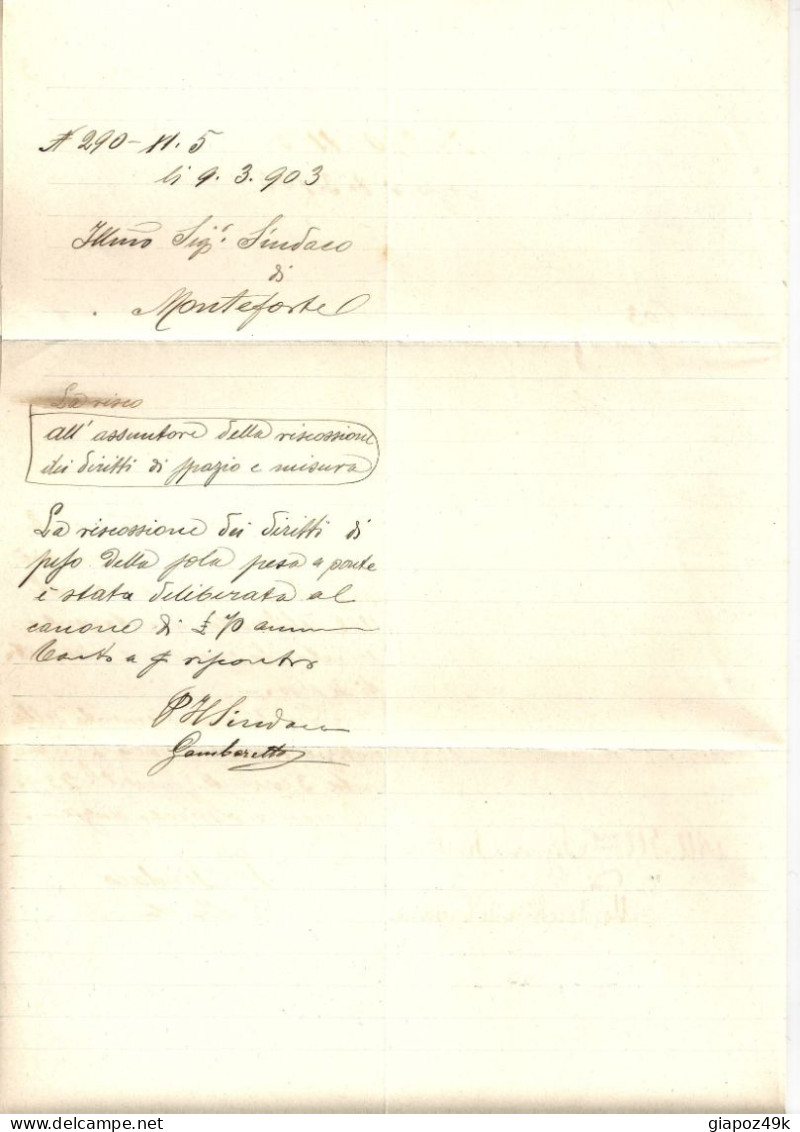 N 290 - H. 5
li 9. 3. 903
Illmo Sigr. Sindaco
di
Monteforte
La risco
all' assuntore della riscossione
dei diritti di spazio e misura
La riscossione dei diritti di
peso della sola pesa a ponte
è stata deliberata al
canone di £
Tanto a riscontro
Pl Sindaco
Gambaretto
delcampe.net
giapoz49k